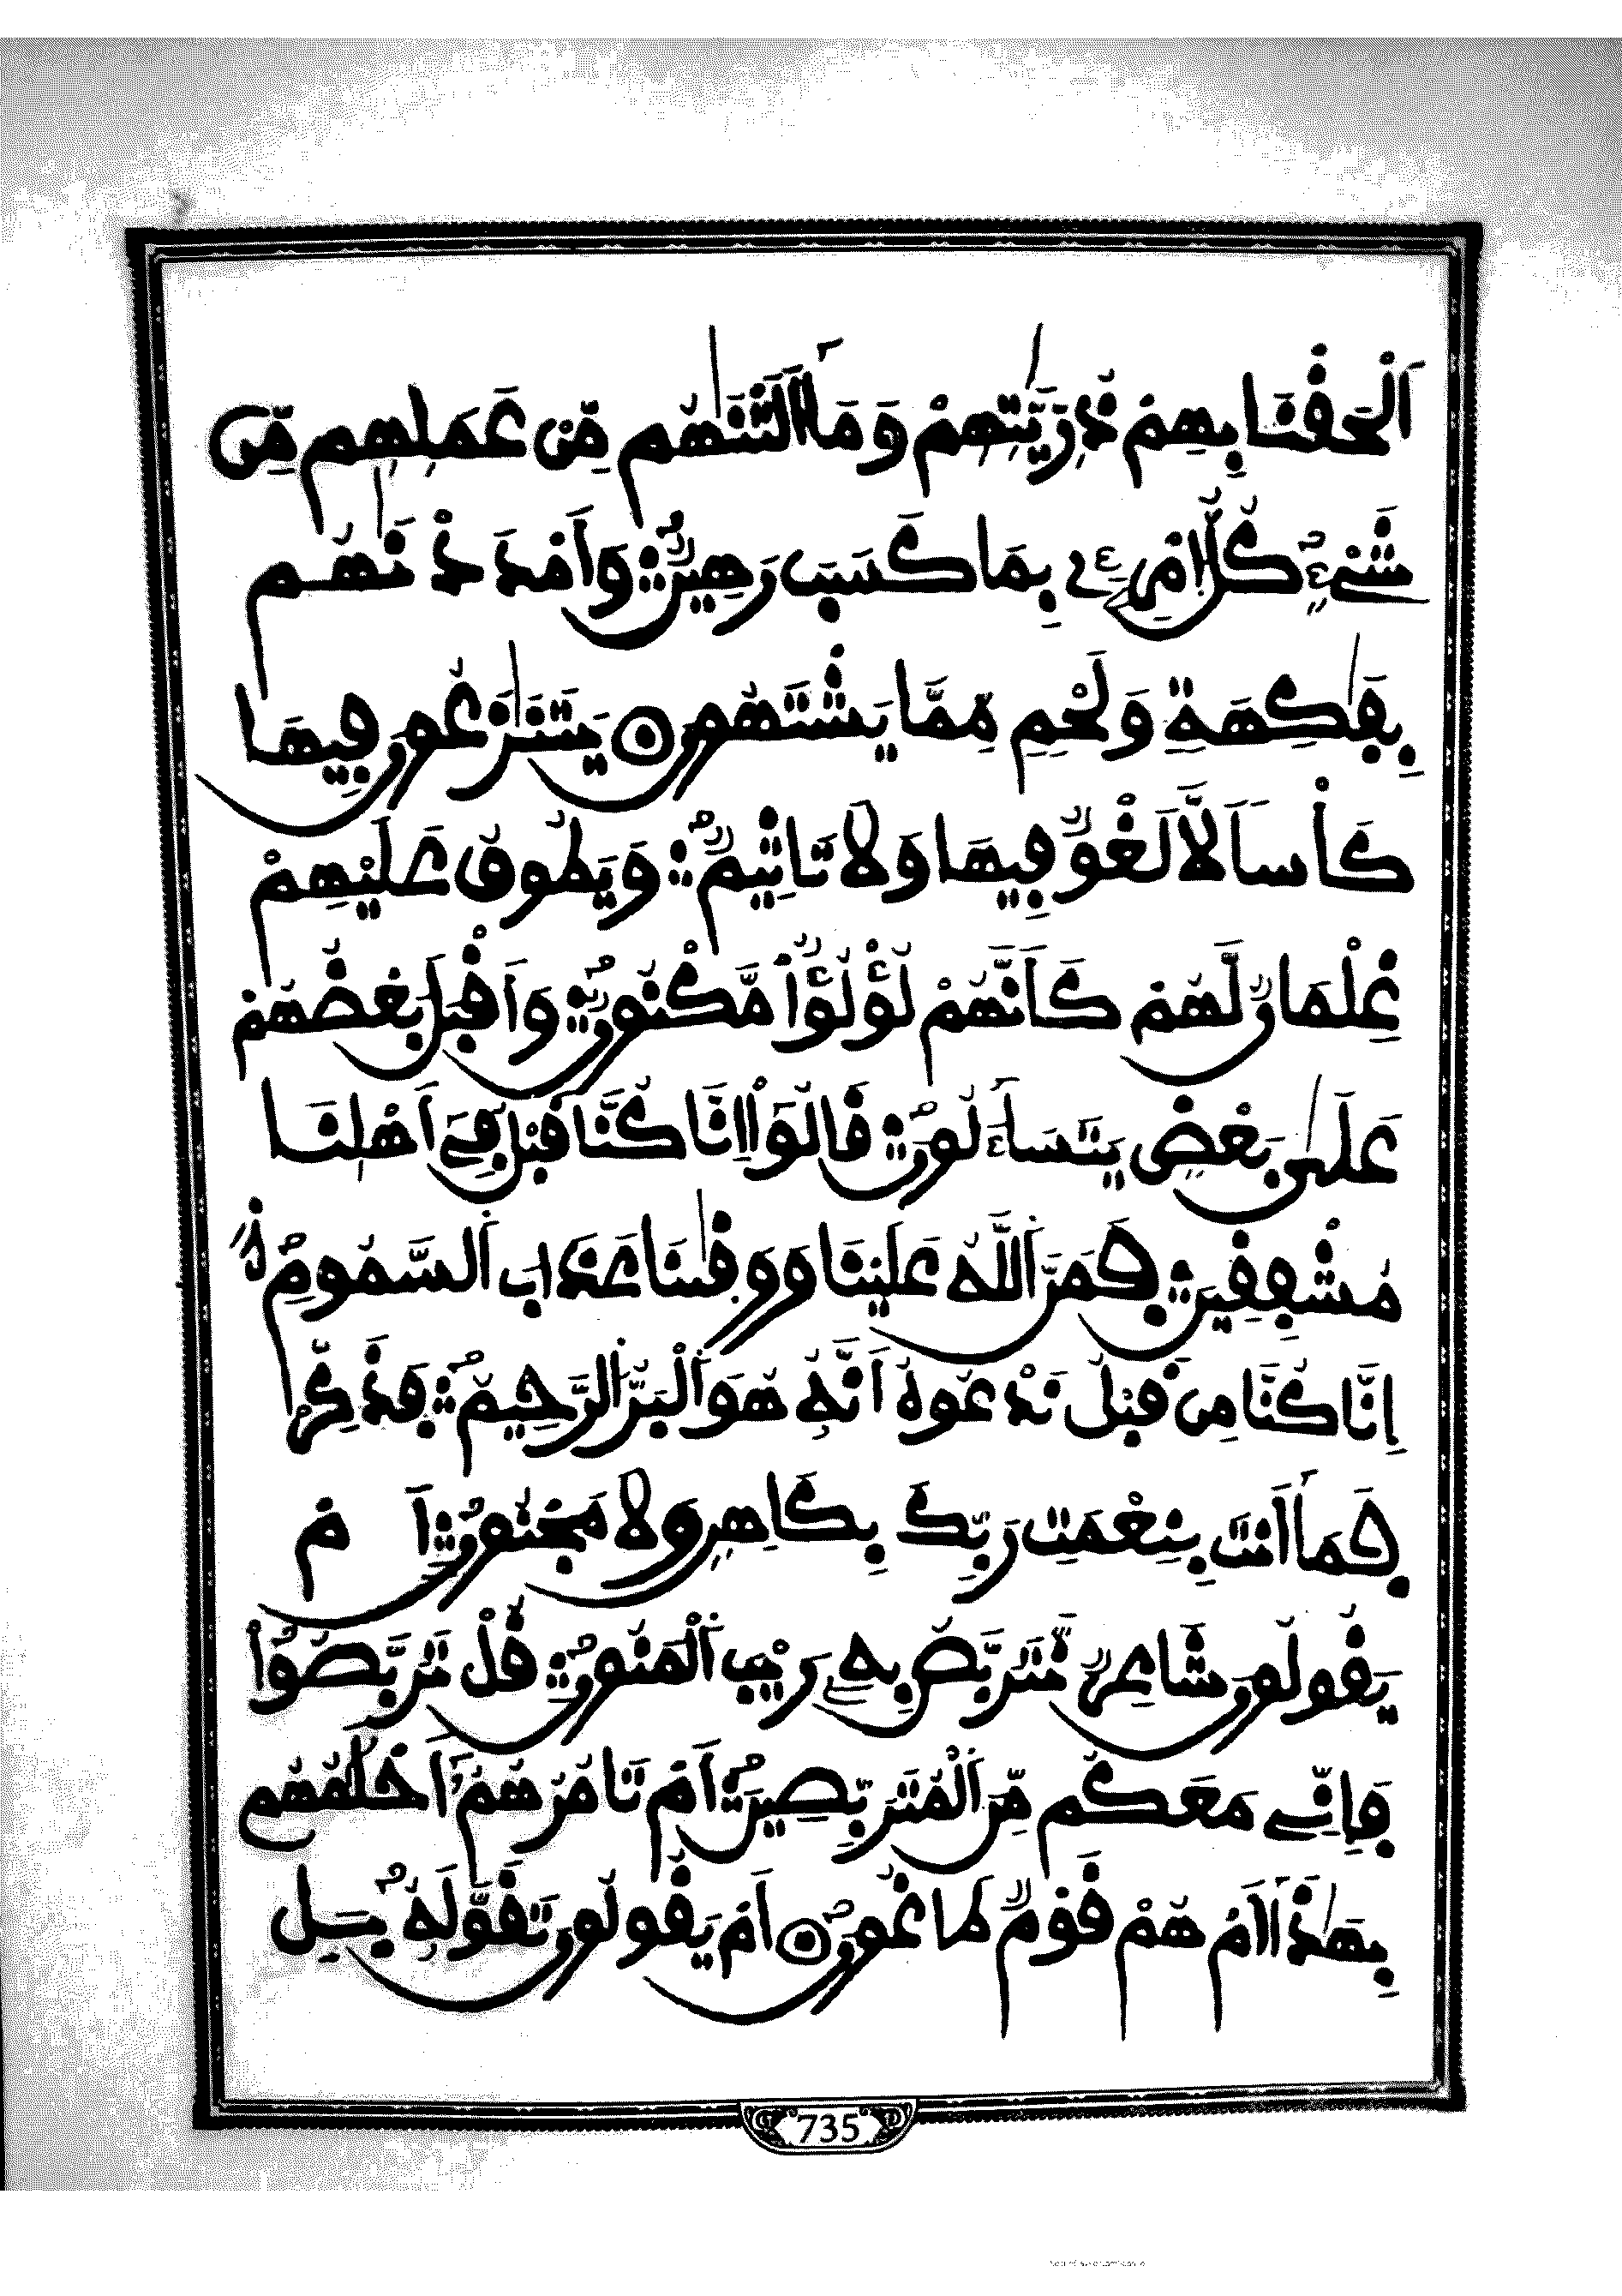 اَلْحَقْنَا بِهِمْ ذُرِّيَّٰتِهِمْ وَمَآ أَلَتْنَٰهُم مِّنْ عَمَلِهِم مِّن
شَيْءٍ كُلُّ اُمْرِےٍٕ بِمَا كَسَبَ رَهِينٌ وَأَمْدَدْنَٰهُم
بِفَٰكِهَةٍ وَلَحْمٍ مِّمَّا يَشْتَهُونَ يَتَنَٰزَعُونَ فِيهَا
كَأْساً لَّا لَغْوٌ فِيهَا وَلَا تَاثِيمٌ وَيَطُوفُ عَلَيْهِمْ
غِلْمَانٌ لَّهُمْ كَأَنَّهُمْ لُؤْلُؤٌ مَّكْنُونٌ وَأَقْبَلَ بَعْضُهُمْ
عَلَىٰ بَعْضٍ يَتَسَآءَلُونَ قَالُوٓاْ إِنَّا كُنَّا قَبْلُ فِےٓ أَهْلِنَا
مُشْفِقِينَ فَمَنَّ اَللَّهُ عَلَيْنَا وَوَقَىٰنَا عَذَابَ اَلسَّمُومِ
إِنَّا كُنَّا مِن قَبْلُ نَدْعُوهُ أَنَّهُۥ هُوَ اَلْبَرُّ اُلرَّحِيمُ فَذَكِّرْ
فَمَآ أَنتَ بِنِعْمَتِ رَبِّكَ بِكَاهِنٍ وَلَا مَجْنُونٍ أَمْ
يَقُولُونَ شَاعِرٌ نَّتَرَبَّصُ بِهِۦ رَيْبَ اَلْمَنُونِ قُلْ تَرَبَّصُواْ
فَإِنِّے مَعَكُم مِّنَ اَلْمُتَرَبِّصِينَ أَمْ تَامُرُهُمُۥٓ أَحْلَٰمُهُم
بِهَٰذَآ أَمْ هُمْ قَوْمٌ طَاغُونَ أَمْ يَقُولُونَ تَقَوَّلَهُۥ بَل
735